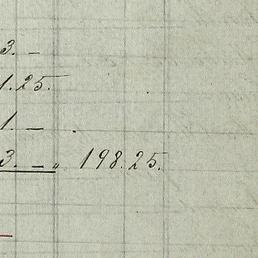 3. —
1.25.
1. —
3. — „ 198.25.